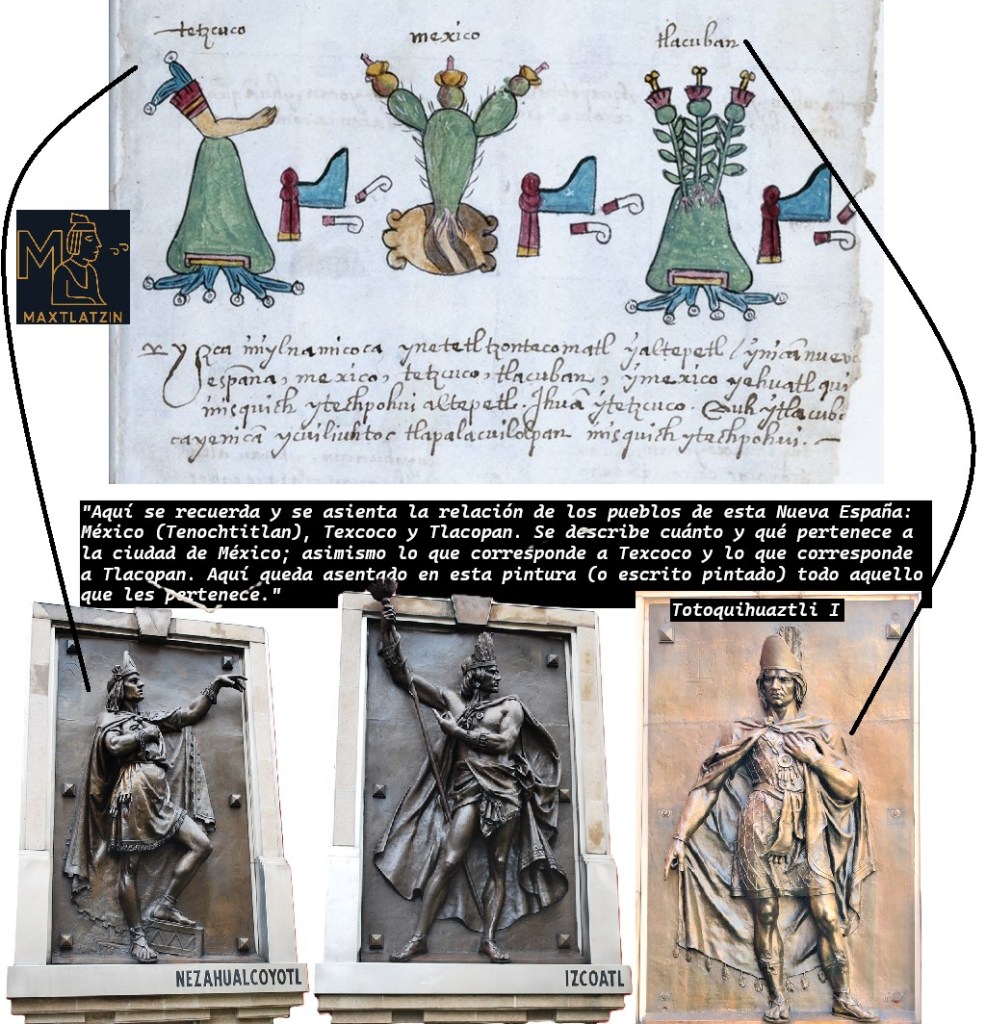 tetzcuco
mexico
tlacuban
yzca ynylnamicoca ynetetl tzontecomatl yaltepetl / ynicā nueva
españa, mexico, tetzcuco, tlacuban, ymexico yehuatl qui
nisquich ytechpohui altepetl. Ihuā ytetzcuco. Auh ytlacuba
cayenicā ycuiliuhtoc tlapalacuilolpan inisquich ytechpohui.
M
MAXTLATZIN
"Aquí se recuerda y se asienta la relación de los pueblos de esta Nueva España:
México (Tenochtitlan), Texcoco y Tlacopan. Se describe cuánto y qué pertenece a
la ciudad de México; asimismo lo que corresponde a Texcoco y lo que corresponde
a Tlacopan. Aquí queda asentado en esta pintura (o escrito pintado) todo aquello
que les pertenece."
Totoquihuaztli I
NEZAHUALCOYOTL
IZCOATL